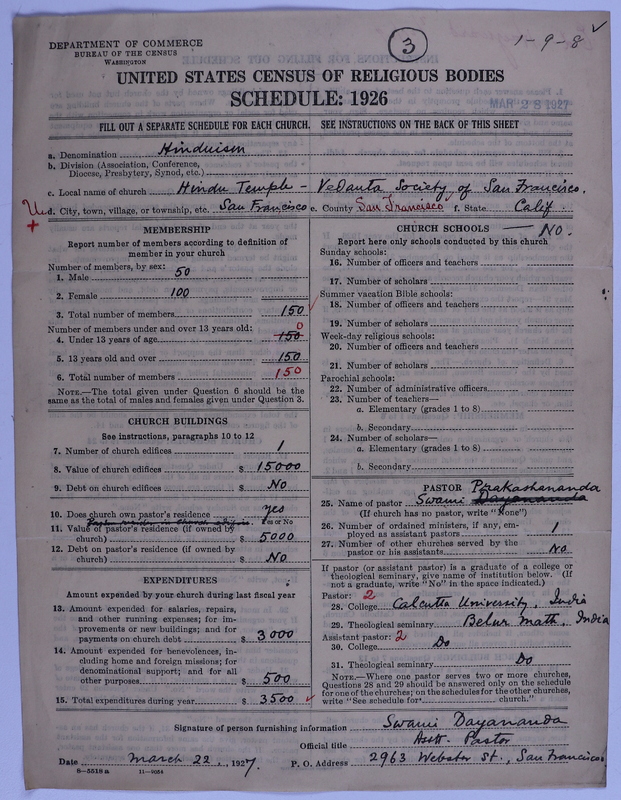 DEPARTMENT OF COMMERCE
BUREAU OF THE CENSUS
WASHINGTON
3
1-9-8
UNITED STATES CENSUS OF RELIGIOUS BODIES
SCHEDULE: 1926
MAR 28 1927
FILL OUT A SEPARATE SCHEDULE FOR EACH CHURCH. SEE INSTRUCTIONS ON THE BACK OF THIS SHEET
a. Denomination Hinduism
b. Division (Association, Conference, Diocese, Presbytery, Synod, etc.)
c. Local name of church Hindu Temple – Vedanta Society of San Francisco.
d. City, town, village, or township, etc. San Francisco e. County San Francisco f. State Calif.
MEMBERSHIP
Report number of members according to definition of
member in your church
Number of members, by sex:
1. Male 50
2. Female 100
3. Total number of members 150
Number of members under and over 13 years old:
4. Under 13 years of age 150 0
5. 13 years old and over 150
6. Total number of members 150
NOTE.—The total given under Question 6 should be the
same as the total of males and females given under Question 3.
CHURCH BUILDINGS
See instructions, paragraphs 10 to 12
7. Number of church edifices 1
8. Value of church edifices $ 15000
9. Debt on church edifices $ No
10. Does church own pastor's residence yes
Yes or No
11. Value of pastor's residence (if owned by
church) $ 5000
12. Debt on pastor's residence (if owned by
church) $ No
EXPENDITURES
Amount expended by your church during last fiscal year
13. Amount expended for salaries, repairs,
and other running expenses; for im-
provements or new buildings; and for
payments on church debt $ 3000
14. Amount expended for benevolences, in-
cluding home and foreign missions; for
denominational support; and for all
other purposes $ 500
15. Total expenditures during year $ 3500
CHURCH SCHOOLS — No.
Report here only schools conducted by this church
Sunday schools:
16. Number of officers and teachers
17. Number of scholars
Summer vacation Bible schools:
18. Number of officers and teachers
19. Number of scholars
Week-day religious schools:
20. Number of officers and teachers
21. Number of scholars
Parochial schools:
22. Number of administrative officers
23. Number of teachers—
a. Elementary (grades 1 to 8)
b. Secondary
24. Number of scholars—
a. Elementary (grades 1 to 8)
b. Secondary
PASTOR Prakashananda
25. Name of pastor Swami Dayananda
(If church has no pastor, write "None")
26. Number of ordained ministers, if any, em-
ployed as assistant pastors 1
27. Number of other churches served by the
pastor or his assistants No
If pastor (or assistant pastor) is a graduate of a college or
theological seminary, give name of institution below. (If
not a graduate, write "No" in the space indicated.)
Pastor: 2
28. College Calcutta University, India
29. Theological seminary Belur Math, India
Assistant pastor: 2
30. College Do
31. Theological seminary Do
NOTE.—Where one pastor serves two or more churches,
Questions 28 and 29 should be answered only on the schedule
for one of the churches; on the schedules for the other churches,
write "See schedule for church."
Signature of person furnishing information Swami Dayananda
Official title Asst. Pastor
Date March 22, 1927. P. O. Address 2963 Webster St., San Francisco
8—5518 a 11—9054